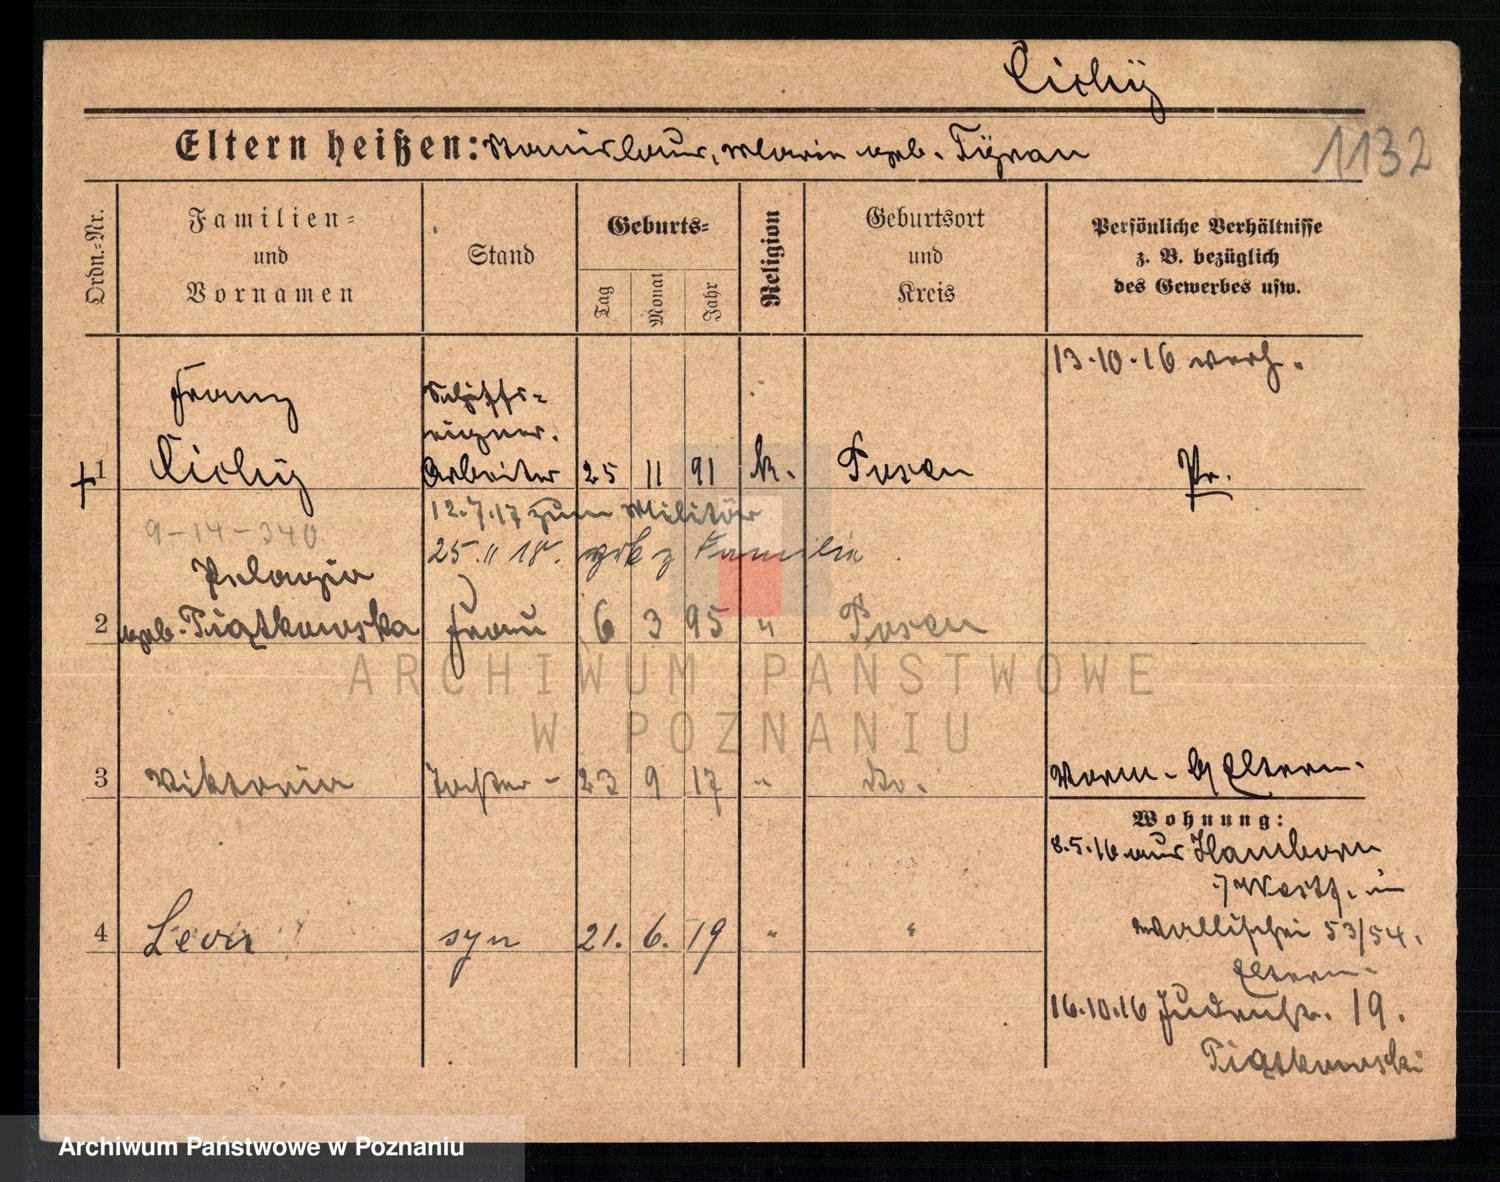 Cichy
Eltern heißen: Stanislaus, Maria geb. Tyran
1132
Ordn.-Nr.
Familien-
und
Vornamen
Stand
Geburts-
Tag
Monat
Jahr
Religion
Geburtsort
und
Kreis
Persönliche Verhältnisse
z. B. bezüglich
des Gewerbes usw.
13.10.16 verh.
Franz
Schiffs-
eigner.
1 Cichy Arbeiter 25 11 91 k. Posen Pr.
9-14-340
12.7.17 zum Militär
25. 11 18. Familie
Pelagia
2 geb. Piątkowska Frau 6 3 95 " Posen
3 Viktoria Tochter 23 9 17 " do.
Vorm. Eltern.
Wohnung:
8.5.16 aus Hamborn
i/Westf. in
4 Leon syn 21. 6. 19 " "
Wallischei 53/54.
Eltern.
16.10.16 Judenstr. 19.
Piątkowski
ARCHIWUM PAŃSTWOWE
W POZNANIU
Archiwum Państwowe w Poznaniu